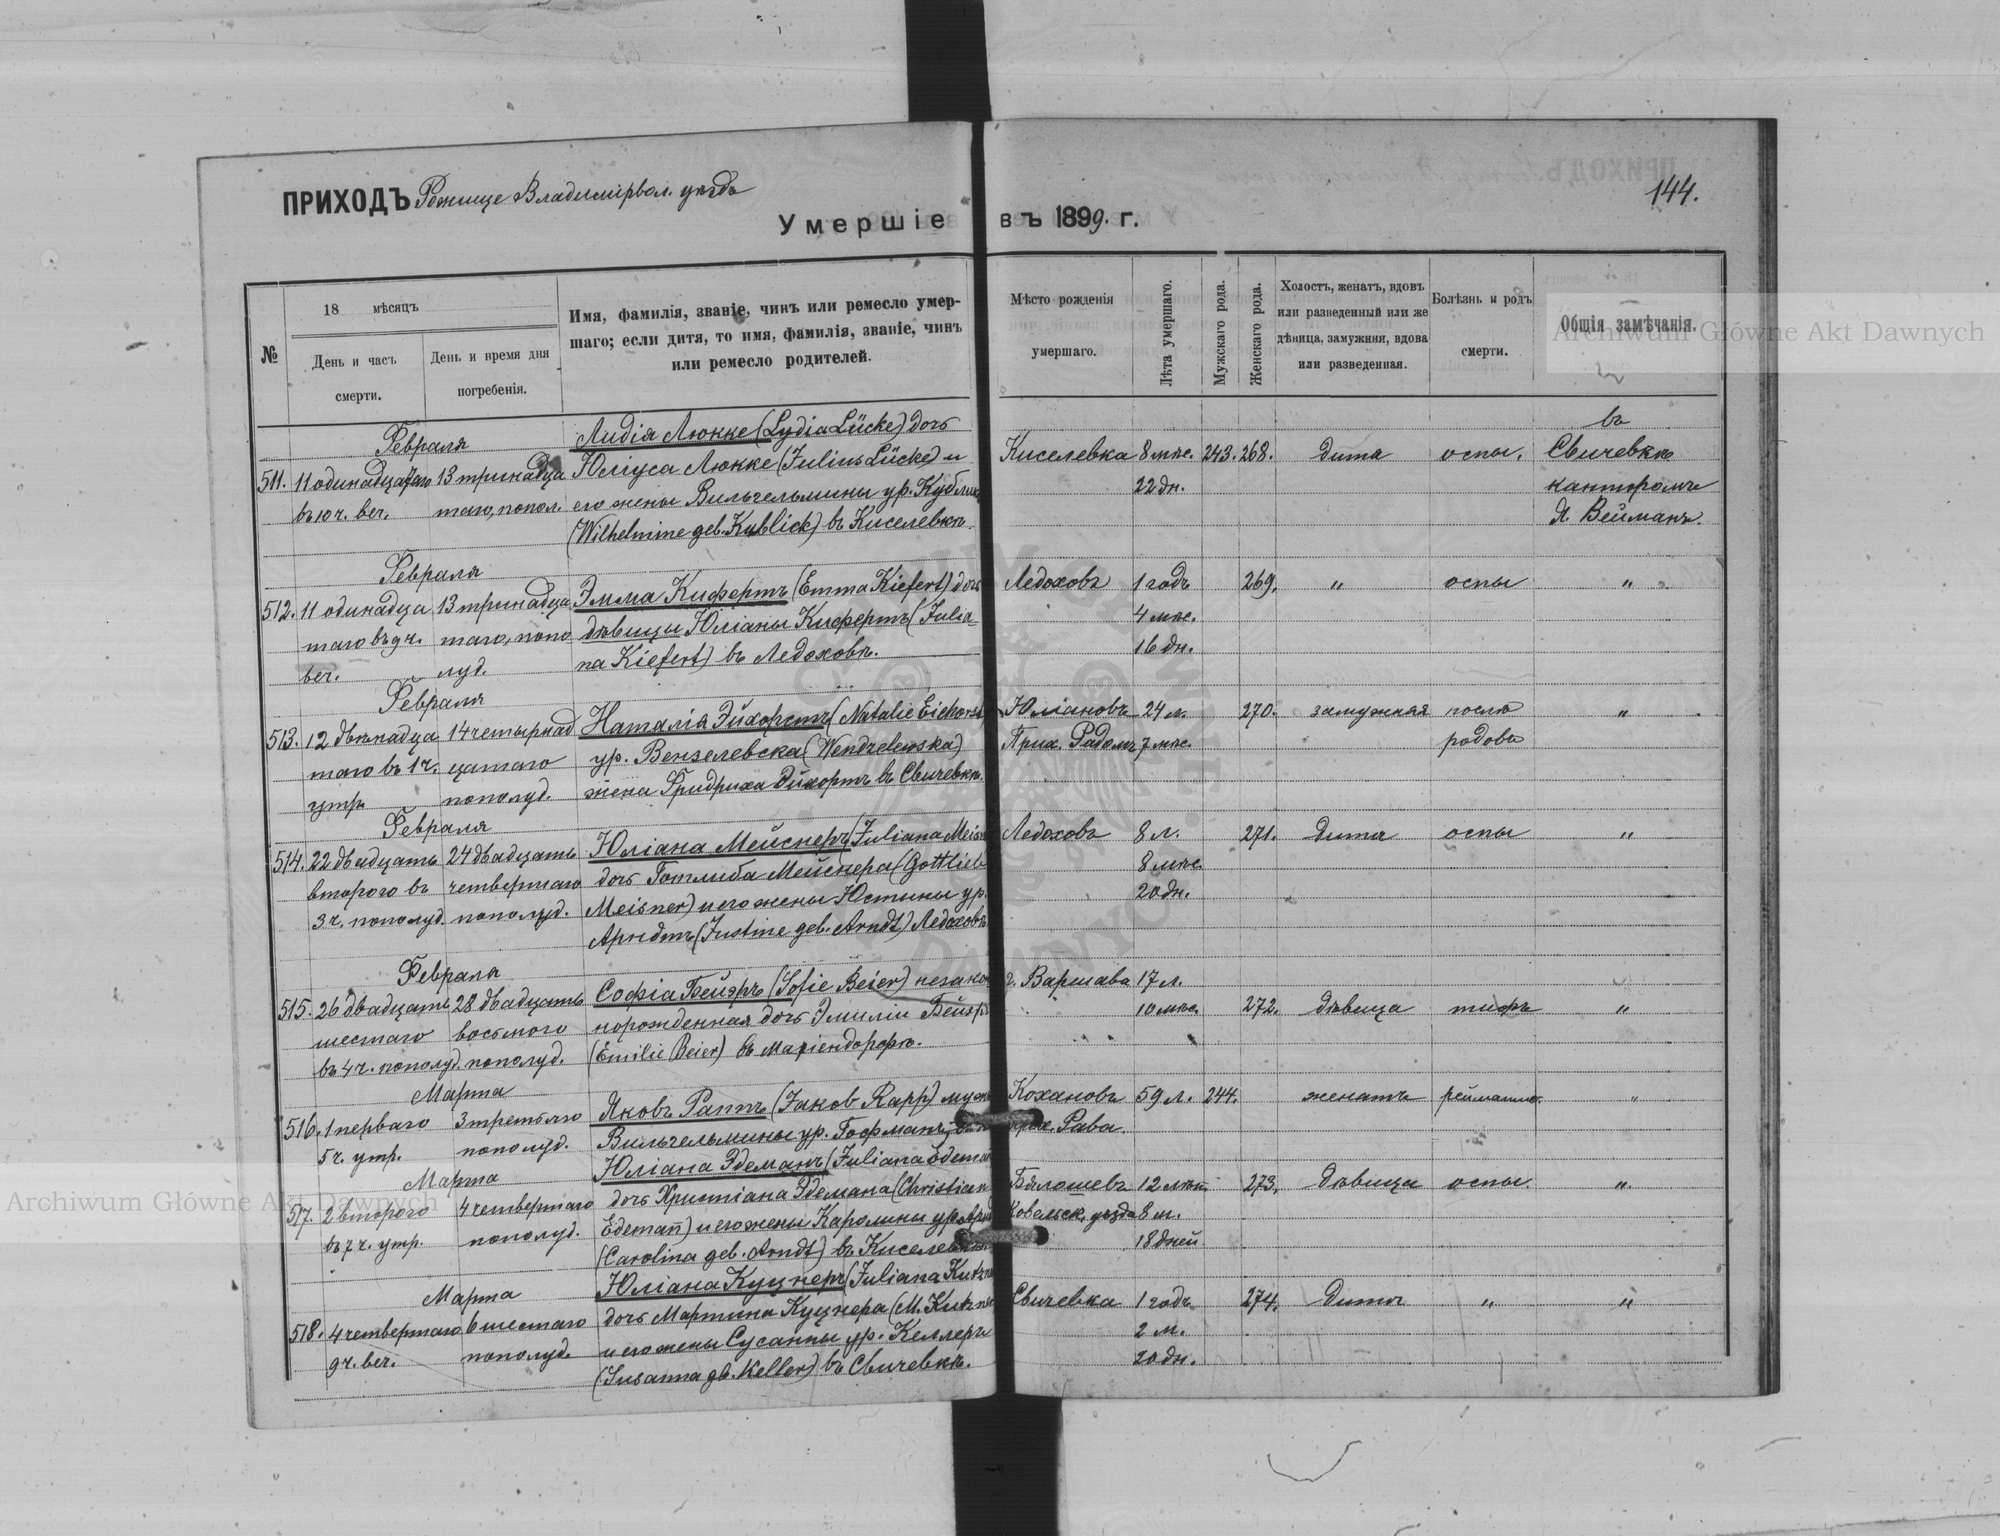 ПРИХОДЪ Рожище Владимірвол. уѣздъ
144.
Умершіе въ 1899. г.
№
18 мѣсяцъ
День и часъ смерти.
День и время дня погребенія.
Имя, фамилія, званіе, чинъ или ремесло умер-
шаго; если дитя, то имя, фамилія, званіе, чинъ
или ремесло родителей.
Мѣсто рожденія умершаго.
Лѣта умершаго.
Мужскаго рода.
Женскаго рода.
Холостъ, женатъ, вдовъ
или разведенный или же
дѣвица, замужняя, вдова
или разведенная.
Болѣзнь и родъ смерти.
Общія замѣчанія.
Archiwum Główne Akt Dawnych
Февраля Лидія Люкке (Lydia Lücke) дочь въ
511. 11 одинадцатаго 13 тринадца Юліуса Люкке (Julius Lücke) и Киселевка 8 мѣс. 243. 268. дитя оспы. Свичевкѣ
въ 10 ч. веч. таго, попол. его жены Вильгельмины ур. Кублик 22 дн. канторомъ
(Wilhelmine geb. Kublick) въ Киселевкѣ. Я. Вейманъ.
Февраля
512. 11 одинадца 13 тринадца Эмма Кифертъ (Emma Kiefert) дочь Ледоховъ 1 годъ 269. " оспы "
таго въ 9 ч. таго, попо дѣвицы Юліаны Кифертъ (Julia 4 мѣс.
веч. луд. na Kiefert) въ Ледоховѣ. 16 дн.
Февраля
513. 12 двѣнадца 14 четырнад Наталія Эйхорстъ (Natalie Eichorst Юліановъ 24 л. 270. замужняя послѣ "
таго въ 1 ч. цатаго ур. Вензелевска (Wendzelewska) Прих. Радомъ 7 мѣс. родовъ
утр. пополуд. жена Фридриха Эйхортъ въ Свичевкѣ.
Февраля
514. 22 двадцать 24 двадцать Юліана Мейснеръ (Juliana Meisn Ледоховъ 8 л. 271. дитя оспы "
второго въ четвертаго дочь Готлиба Мейснера (Gottlieb 8 мѣс.
3 ч. пополуд. пополуд. Meisner) и его жены Юстины ур. 20 дн.
Арндтъ (Justine geb. Arndt) Ледоховъ
Февраля
515. 26 двадцать 28 двадцать Софія Бейэръ (Sofie Beier) незакон г. Варшава 17 л.
шестаго восьмого норожденная дочь Эмиліи Бейэръ 10 мѣс. 272. дѣвица тифъ "
въ 4 ч. пополуд. пополуд. (Emilie Beier) въ Маріендорфѣ.
Марта
516. 1 перваго 3 третьяго Яковъ Раппъ (Jakob Rapp) мужъ Кохановъ 59 л. 244. женатъ "
5 ч. утр. пополуд. Вильгельмины ур. Гофманъ, прих. Рава.
Марта Юліана Эдеманъ (Juliana Edeman
517. 2 второго 4 четвертаго дочь Христіана Эдемана (Christian Бялошевъ 12 лѣт. 273. дѣвица оспы. "
въ 7 ч. утр. пополуд. Edemañ) и его жены Каролины ур. Арн Ковельск. уѣзда 8 м.
(Carolina geb. Arndt) въ Киселевкѣ. 18 дней
Марта Юліана Куцнеръ (Juliana Kutzne
518. 4 четвертаго 6 шестаго дочь Мартина Куцнера (M. Kutzner Свичевка 1 годъ 274. дитя " "
9 ч. веч. пополуд. и его жены Сусанны ур. Келлеръ 2 м.
(Susanna geb. Keller) въ Свичевкѣ. 20 дн.
Archiwum Główne Akt Dawnych